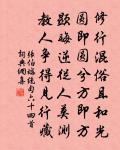 修行混俗且和光
圆即圆兮方即方
显晦逆从人莫测
教人争得见行藏
张伯端绝句六十四首
词典网集